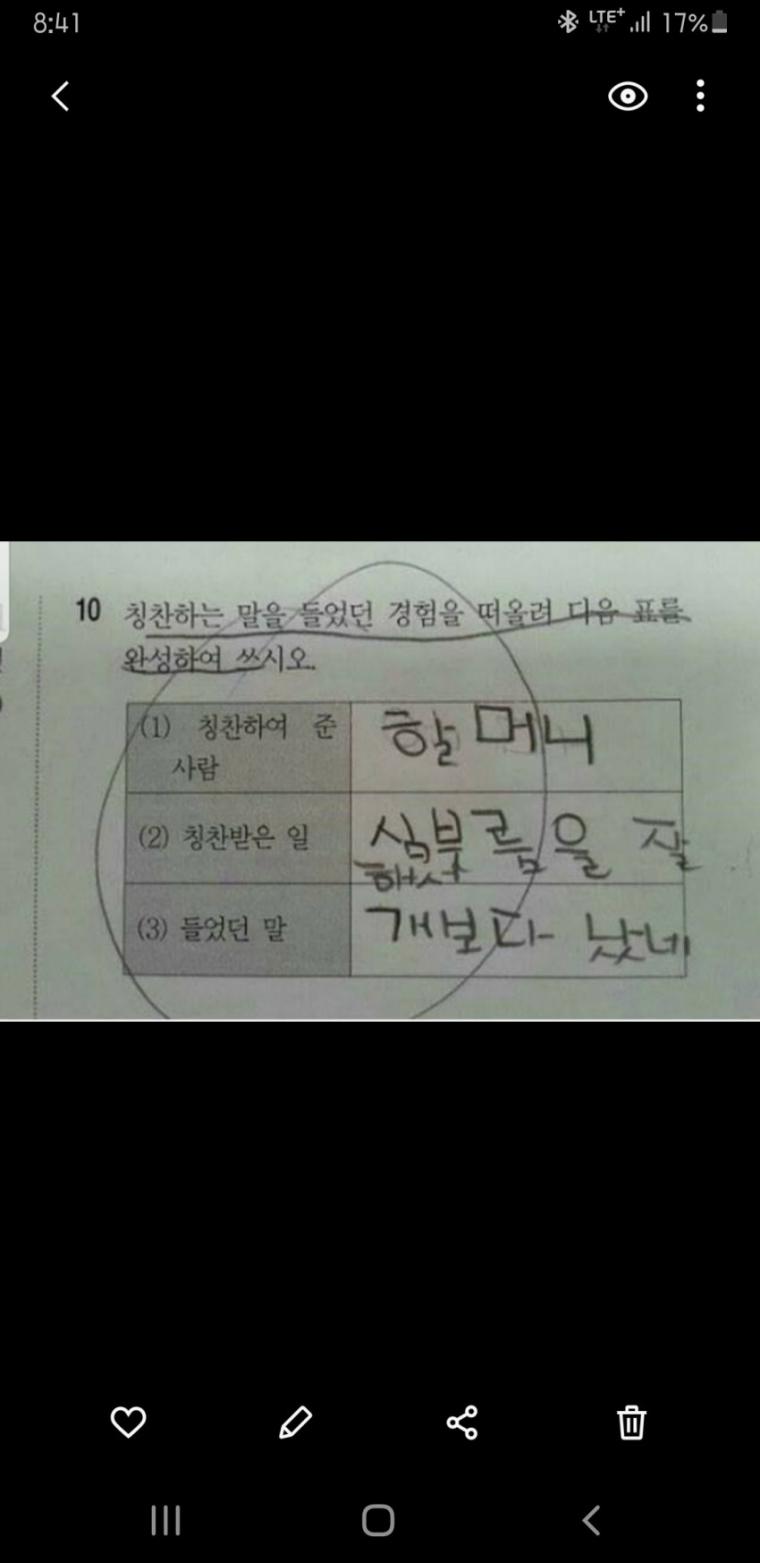 8:41
LTE+ 17%
10 칭찬하는 말을 들었던 경험을 떠올려 다음 표를
완성하여 쓰시오.
(1) 칭찬하여 준
사람
할머니
(2) 칭찬받은 일
심부름을 잘
해서
(3) 들었던 말
개보다 낫네